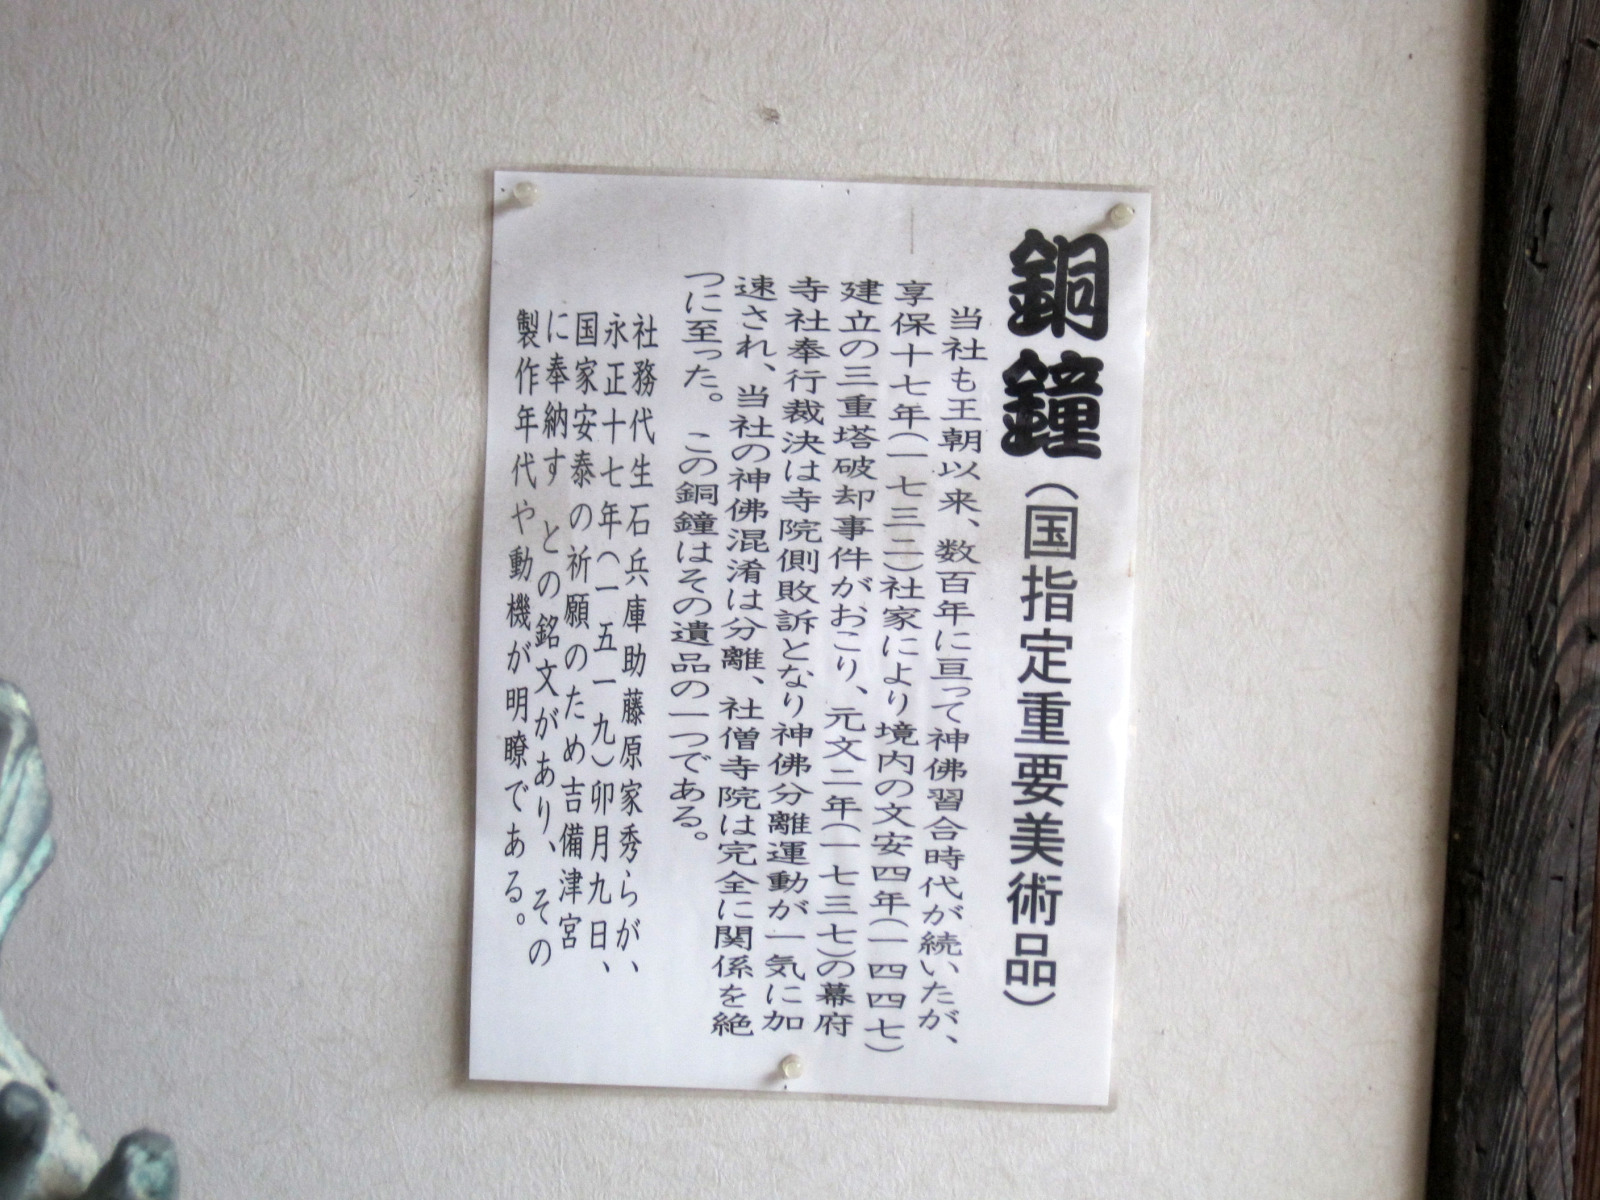 銅鐘（国指定重要美術品）
当社も王朝以来、数百年に亘って神佛習合時代が続いたが、
享保十七年（一七三二）社家により境内の文安四年（一四四七）
建立の三重塔破却事件がおこり、元文二年（一七三七）の幕府
寺社奉行裁決は寺院側敗訴となり神佛分離運動が一気に加
速され、当社の神佛混淆は分離、社僧寺院は完全に関係を絶
つに至った。 この銅鐘はその遺品の一つである。
社務代生石兵庫助藤原家秀らが、
永正十七年（一五一九）卯月九日、
国家安泰の祈願のため吉備津宮
に奉納す との銘文があり、その
製作年代や動機が明瞭である。